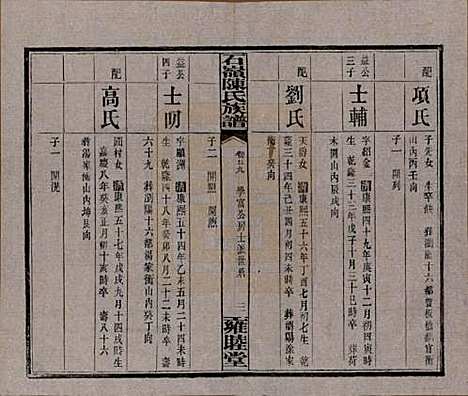 配
項氏
子先女 生卒缺 葬瀏陽十六都賢板橋鄒官衝
山內丙壬向
子一 開列
益公
三子
士輔
字紹金 清康熙四十九年庚寅十二月初四寅時
生 乾隆三十三年戊子十月三十巳時卒 葬
木園山內辰戌向
配
劉氏
天爵女 清康熙五十六年丁酉七月初七生 乾
隆三十四年己丑四月初四卒 葬瀏陽徐家
向
子二 開 開
石嶺陳氏族譜
學富公房士派世系
三
雍睦堂
益公
四子
士明
字顯湖 清康熙五十四年乙未五月二十四未時
生 乾隆四十八年癸卯八月二十二未時卒 壽
六十九 葬瀏陽十六都湯家衝山內癸丁向
配
高氏
國材女 清康熙五十七年戊戌九月十四戌時生
嘉慶八年癸亥正月初十亥時卒 壽八十六
葬湯家 山內坤艮向
子一 開